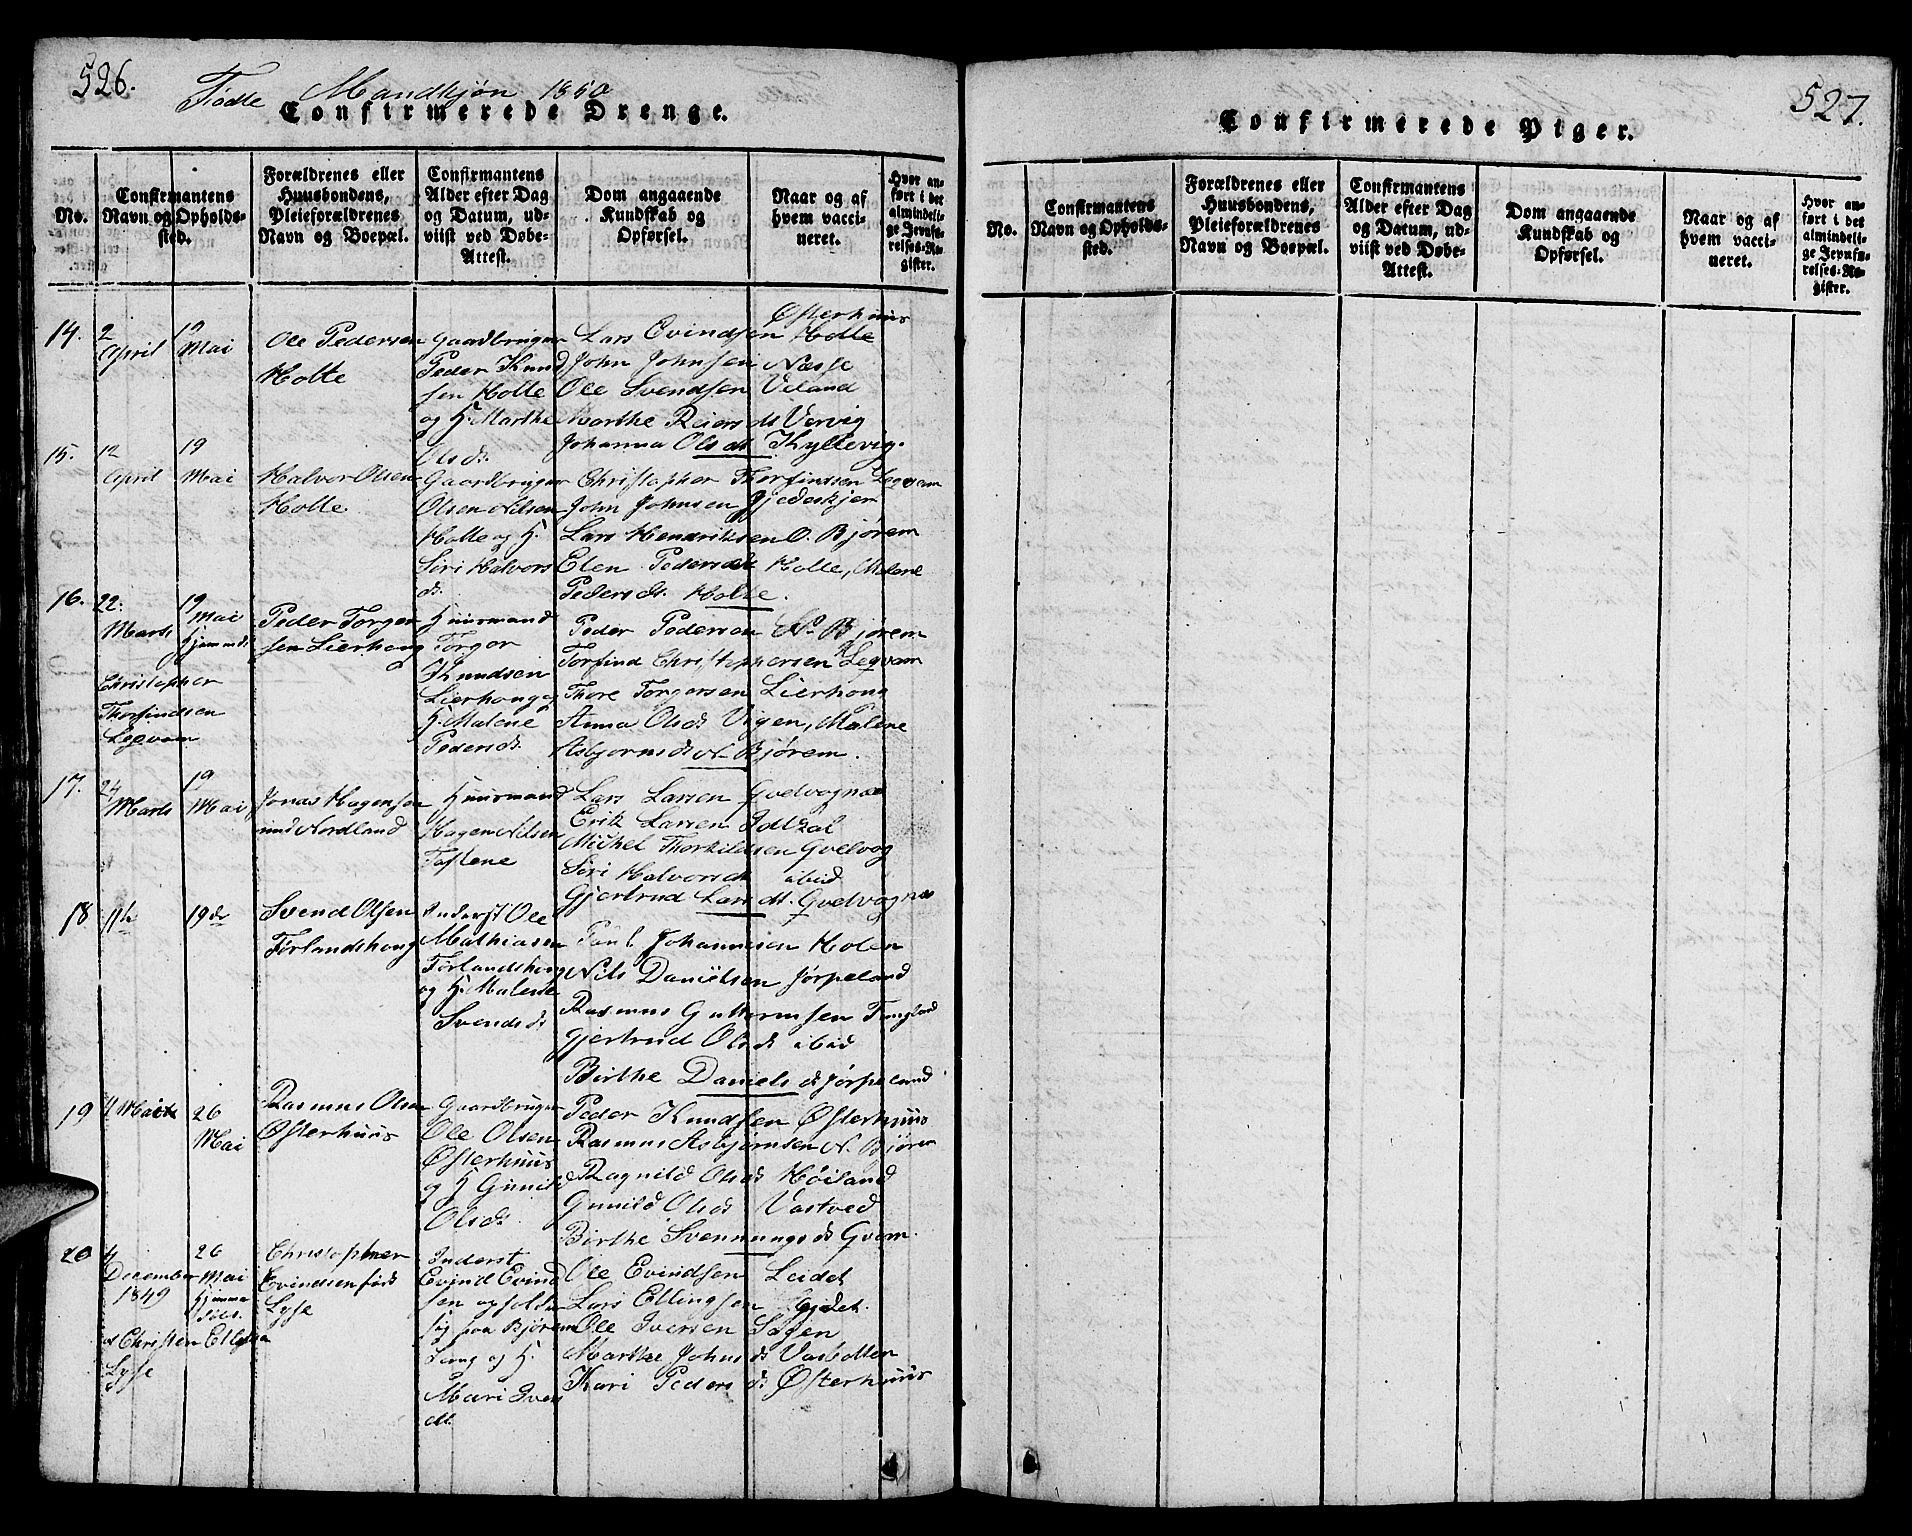 526.
Fødte Mandkjøn 1850
Confirmerede Drenge.
No.
Confirmantens Navn og Opholdssted.
Forældrenes eller Huusbondens, Pleieforældrenes Navn og Boepæl.
Confirmantens Alder efter Dag og Datum, udviist ved Døbe-Attest.
Dom angaaende Kundskab og Opførsel.
Naar og af hvem vaccineret.
Hvor anført i det almindelige Jevnførelses-Register.
14.
2 April
19 Mai
Ole Pedersen
Holte
Gaardbruger
Peder Knud
sen Holte
og H. Marthe
Olsdt.
Østerhuus
Lars Evindsen Holte
John Johnsen Næsse
Ole Svendsen Veland
Marthe Reiersdt Vervig
Johanna Olsdt. Kyllevig.
15.
12 April
19 Mai
Halvor Olsen
Holte
Gaardbruger
Olsen Nilsen
Holte og H.
Siri Halvors
dt.
Christopher Thorfindsen Legvam
John Johnsen Gjedeskjer
Lars Hendriksen O. Bjørem
Elen Pedersdt Holle, Malene
Pedersdt. Holte.
16.
22. Marts
19 Mai
Hjemmd.
Christopher
Thorfindsen
Legvam
Peder Torger
sen Lierhong
Huusmand
Torger
Knudsen
Lierhong og
H. Malene
Pedersdt.
Peder Pedersen N. Bjørem
Torfind Christophersen Legvam
Thore Torgersen Lierhong
Anna Olsdt Vigen, Malene
Asbjornsdt N. Bjørem.
17.
24 Marts
19 Mai
Jonas Hagensen
und Nordland
Huusmand
Hagen Nilsen
Tøstene
Lars Larsen Qvelvognæs
Erik Larsen Idtzal
Michel Thorkildsen Qvelvog
Siri Halvorsdt ibid
Gjertrud Larsdt. Qvelvognæs
18
11te
19de
Svend Olsen
Førlandshong
Inderst Ole
Mathiasen
Førlandshong
og H. Malene
Svendsdt
Paul Johannesen Holen
Nils Daniëlsen Jørpeland
Rasmus Guttormsen Tungland
Gjertrud Olsdt ibid
Birthe Danielsdt Jørpeland
19
26 Mai
Rasmus Olsen
Østerhuus
Gaardbruger
Ole Olsen
Østerhuus
og H Gunild
Olsdt.
Peder Knudsen Østerhuus
Rasmus Asbjørnsen N. Bjørem
Ragnild Olsdt Høiland
Gunild Olsdt Vastved
Birthe Svennungsdt Qvam.
20
4 December 1849
26 Mai
Hjemme
døbt.
af Christen Ellingsen
Lyse
Christopher
Evindsen fød
Lyse
Inderst
Evind Evind
sen opholder
sig paa Bjørem
Lang og H.
Mari Ivers
dt.
Ole Evindsen Leidet
Lars Ellingsen Gjedet.
Ole Iversen Sogen
Marthe Johnsdt Vasbotten
Kari Pedersdt Østerhuus
527.
Confirmerede Piger.
No.
Confirmantens Navn og Opholdssted.
Forældrenes eller Huusbondens, Pleieforældrenes Navn og Boepæl.
Confirmantens Alder efter Dag og Datum, udviist ved Døbe-Attest.
Dom angaaende Kundskab og Opførsel.
Naar og af hvem vaccineret.
Hvor anført i det almindelige Jevnførelses-Register.